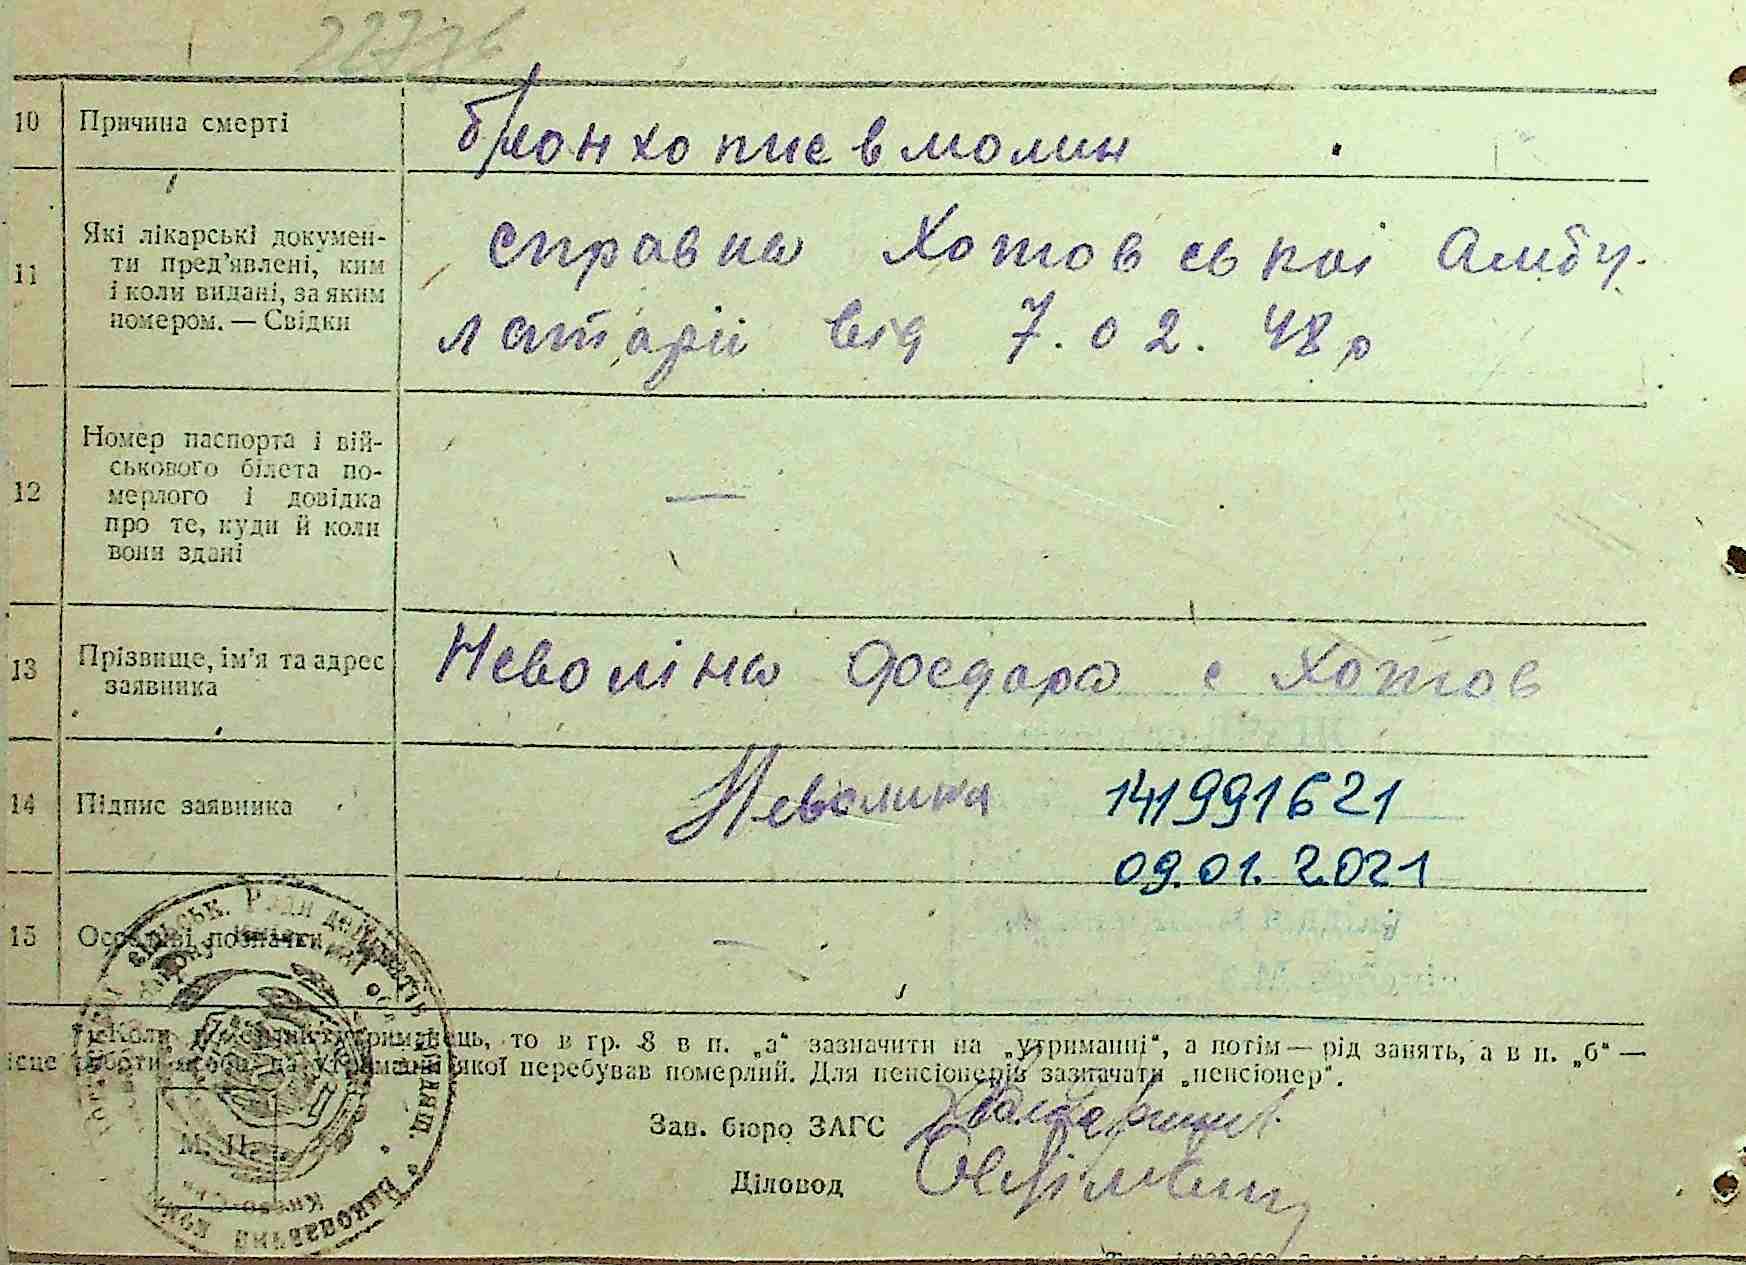 22776
10 Причина смерті бронхопнєвмолин
11 Які лікарські докумен-
ти пред'явлені, ким
і коли видані, за яким
номером. — Свідки
справка Хотовської Амбу-
латарії від 7.02.48 р
12 Номер паспорта і вій-
ськового білета по-
мерлого і довідка
про те, куди й коли
вони здані
—
13 Прізвище, ім'я та адрес
заявника
Неволіна Федора с Хотов
14 Підпис заявника Неволина 141991621
09.01.2021
15 Особливі позначки —
то в гр. 8 в п. „а“ зазначити на „утриманні“, а потім — рід занять, а в п. „б“ —
якої перебував померлий. Для пенсіонерів зазначати „пенсіонер“.
Зав. бюро ЗАГС
Діловод
М. П.